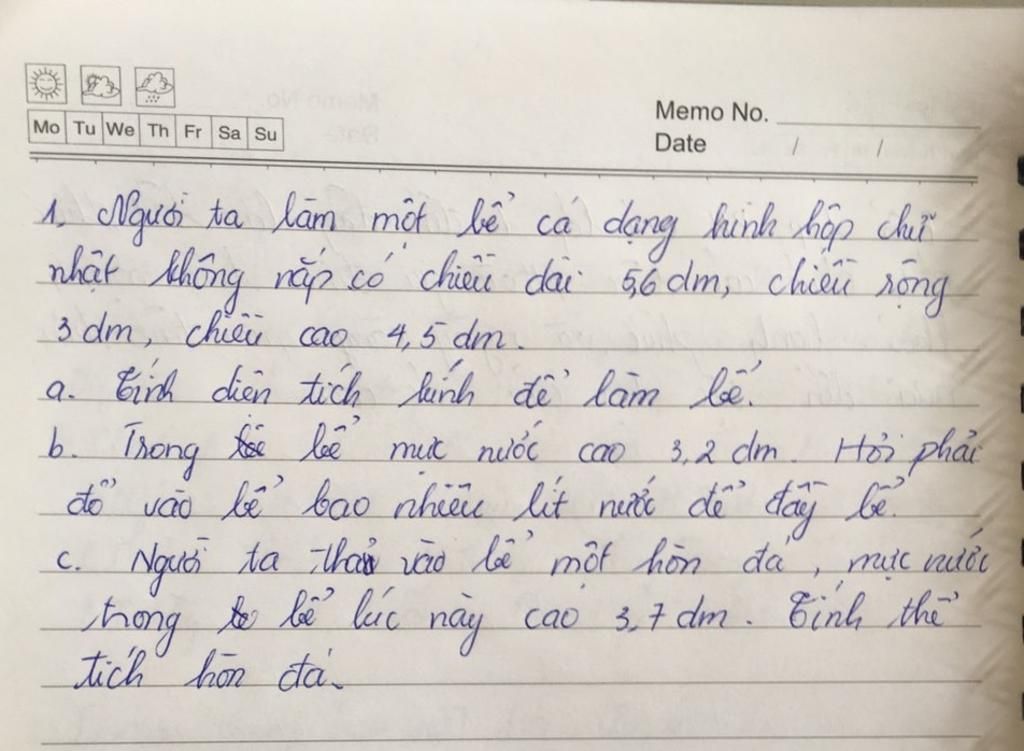 Mo Tu We Th Fr Sa Su
Memo No.
Date / /
1. Người ta làm một bể cá dạng hình hộp chữ
nhật không nắp có chiều dài 5,6 dm, chiều rộng
3 dm, chiều cao 4,5 dm.
a. Tính diện tích kính để làm bể.
b. Trong bể mực nước cao 3,2 dm. Hỏi phải
đổ vào bể bao nhiêu lít nước để đầy bể.
c. Người ta thả vào bể một hòn đá, mực nước
trong bể lúc này cao 3,7 dm. Tính thể
tích hòn đá.